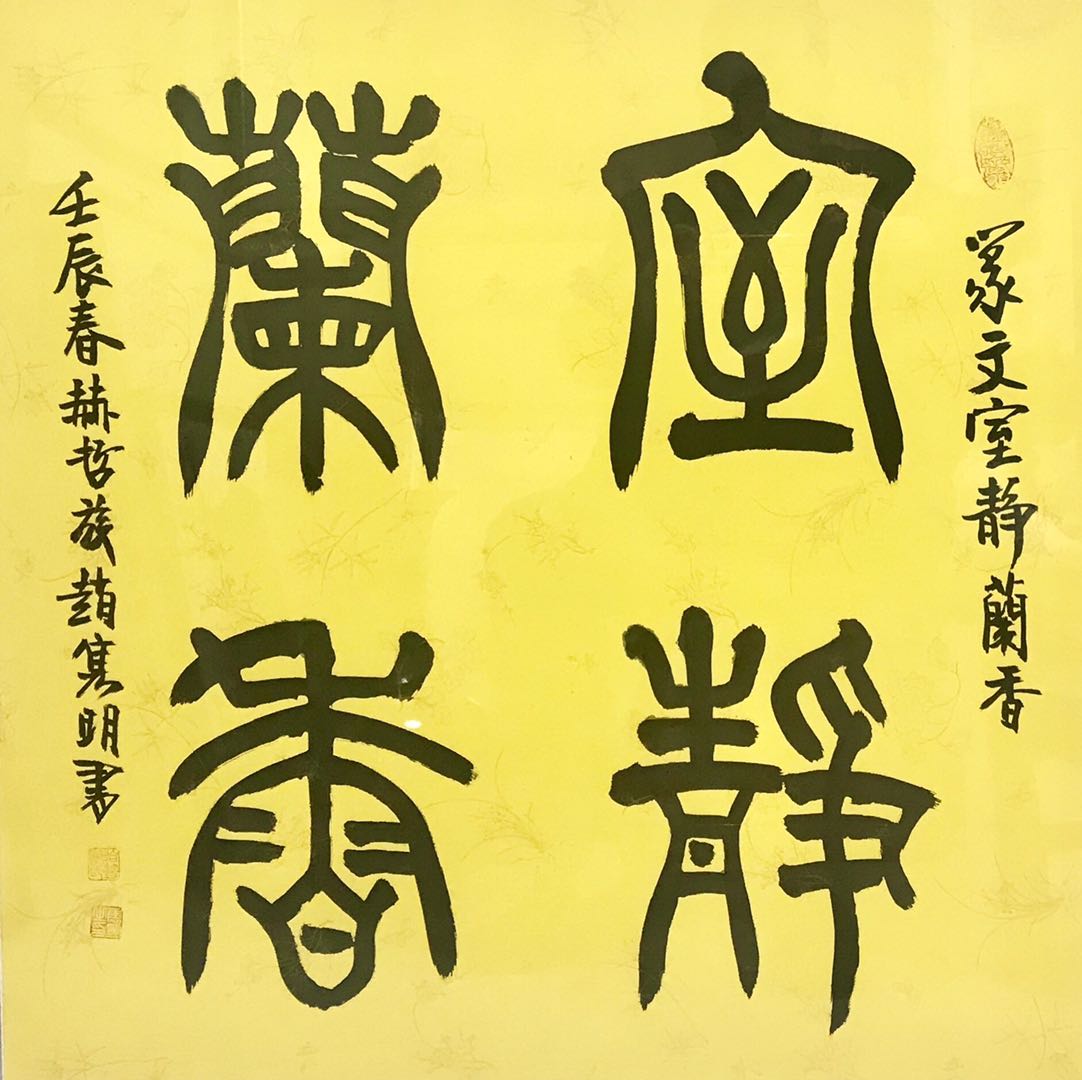 篆文室静蘭香
室靜
蘭香
壬辰春赫哲族趙隽明書